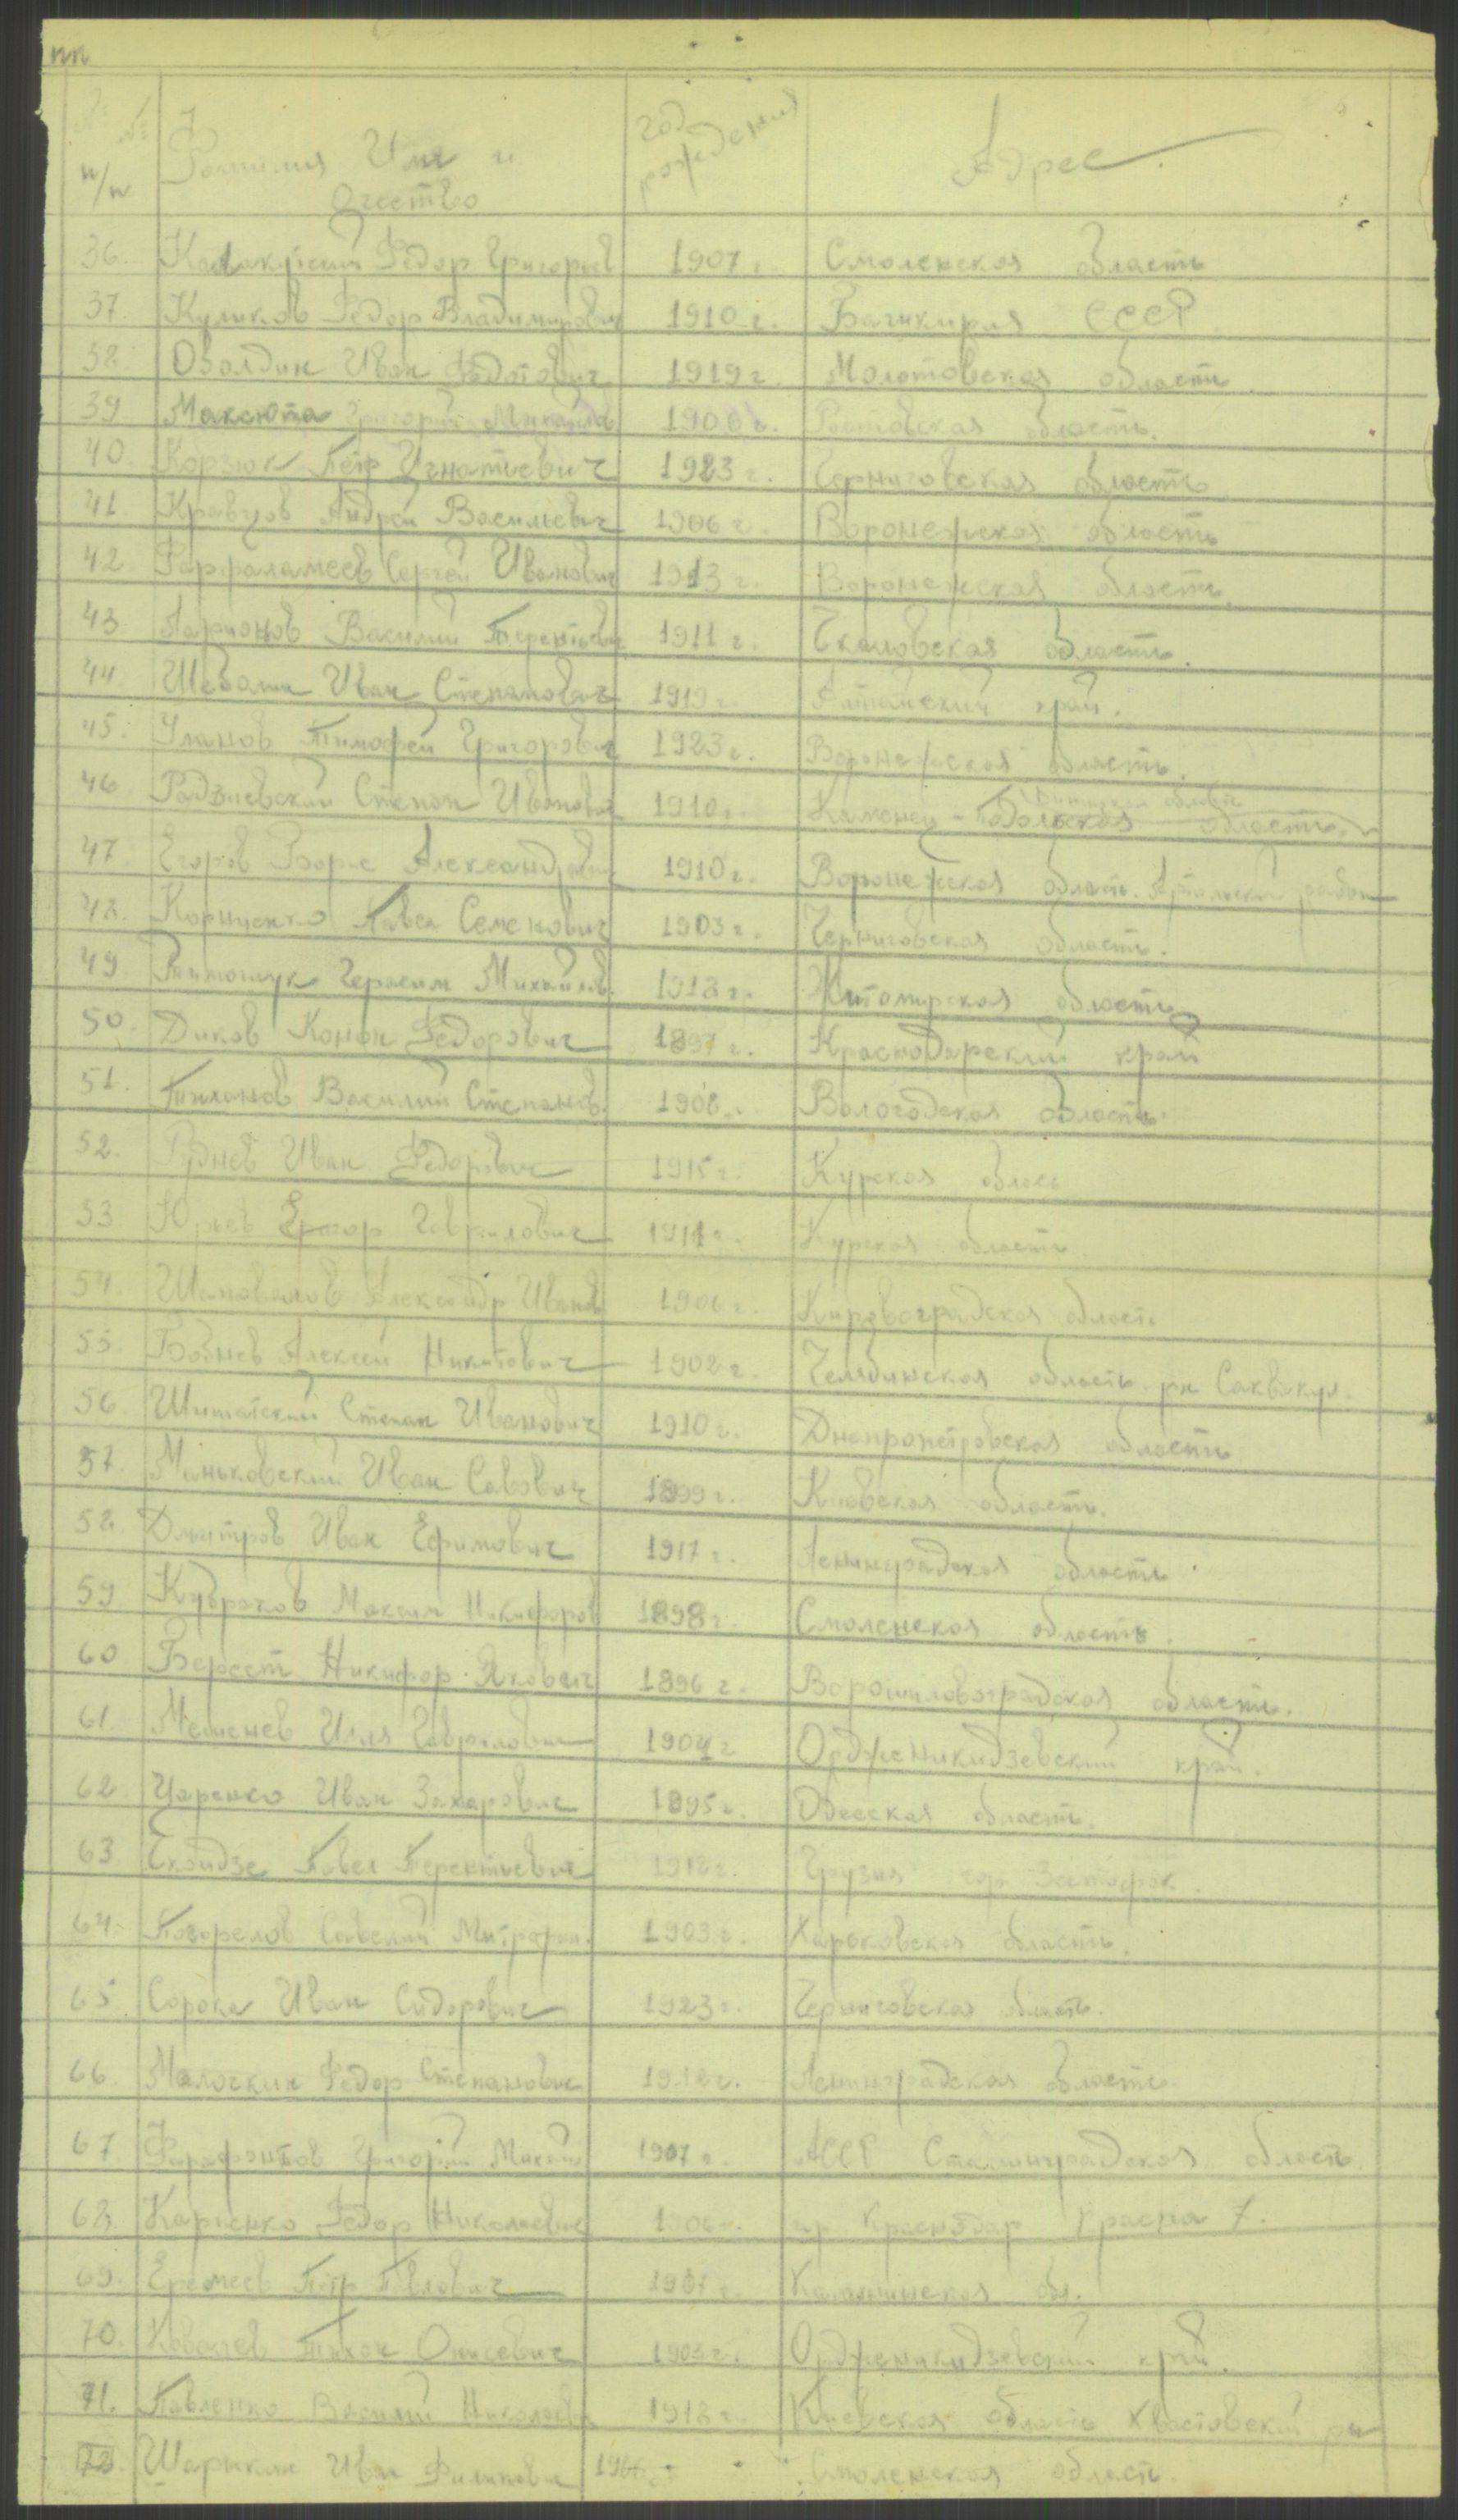 пп
№ №
п/п
Фамилия Имя и
Отчество
год
рождения
Адрес
36. Федор Григорьев 1907 г. Смоленская область
37. Куликов Федор Владимирович 1910 г. Башкирия СССР
38. Оволдин Иван Федотович 1919 г. Молотовская область.
39 Максюта Григорий Михайлов 1900 г. Ростовская область.
40. Корзюк Петр Игнатьевич 1923 г. Черниговская область
41. Кравцов Андрей Васильевич 1906 г. Воронежская область
42 Сергей Иванович 1913 г. Воронежская область.
43 Ларионов Василий Терентьевич 1911 г. Чкаловская область.
44. Иван Степанович 1919 г. Алтайский край.
45. Уланов Тимофей Григорович 1923 г. Воронежская область.
46. Радзиевский Степан Иванович 1910 г. Каменец-Подольская область
47. Егоров Борис Александрович 1910 г. Воронежская область. район
48. Корниенко Павел Семенович 1903 г. Черниговская область.
49 Тимошук Герасим Михайлов. 1918 г. Житомирская область
50. Диков Конон Федорович 1897 г. Краснодарский край
51. Тиханов Василий Степанов. 1908 г. Вологодская область
52. Руднев Иван Федорович 1915 г. Курская облась
53 Юрьев Егор Гаврилович 1911 г. Курская область
54. Шаповалов Александр Иванов 1906 г. Кировоградская область
55. Бобнев Алексей Никитович 1902 г. Челябинская область рн
56. Шишатский Степан Иванович 1910 г. Днепропетровская область
57. Маньковский Иван Савович 1899 г. Киевская область.
58. Дмитров Иван Ефимович 1917 г. Ленинградская область
59. Максим Никифоров 1898 г. Смоленская область.
60 Берест Никифор Якович 1896 г. Ворошиловоградская область.
61. Илия Гаврилович 1904 г Орджоникидзевский край.
62 Царенко Иван Захарович 1895 г. Одесская область.
63 Павел Терентьевич 1918 г. Грузия гор
64. Погорелов Савелий Митрофан. 1903 г. Харьковская область.
65. Сорока Иван Сидорович 1923 г. Черниговская область.
66. Молочкин Федор Степанович Ленинградская область
67. Фарафонтов Григорий Михай 1907 г. АССР Сталинградская область.
68. Карпенко Федор Николаевич 1906 г. гр Краснодар Красна 7.
69. Еремеев Петр Павлович 1907 г. Калининская обл.
70. Ковалев Тихон Онисевич 1903 г. Орджоникидзевский край.
71. Павленко Василий Николаевич 1918 г. Киевская область Хвастовский рн
72. Шарикин Иван Филипович Смоленская область.